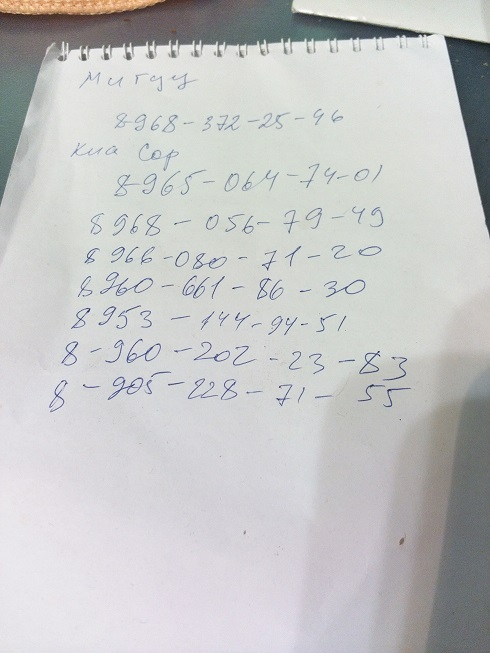 Митуу
8-968-372-25-46
Киа Сор
8-965-064-74-01
8968-056-79-49
8966-080-71-20
8960-661-86-30
8953-144-94-51
8-960-202-23-83
8-905-228-71-55